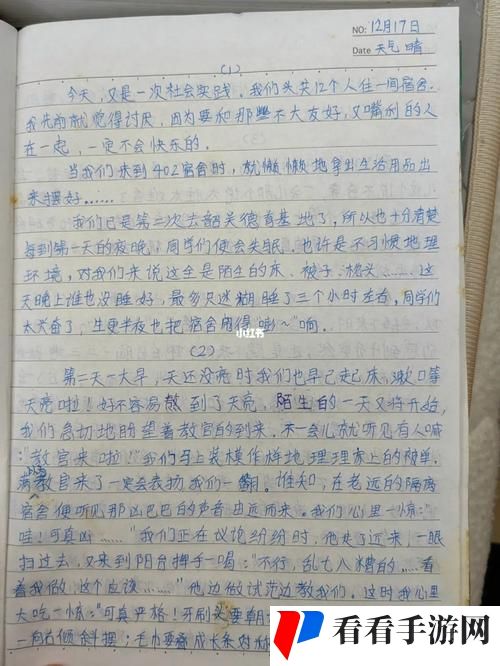 NO: 12月17日
Date 天气晴
(1)
今天,又是一次社会实践,我们头共12个人住一间宿舍.
我先前就觉得讨厌,因为要和那些不大友好,又嘴刁的人
在一起,一定不会快乐的.
当我们来到402宿舍时,就懒懒地拿出生活用品出
来摆好……
我们已是第二次去韶关德育基地了,所以也十分清楚
每到第一天的夜晚,同学们便会失眠,也许是不习惯地理
环境,对我们来说这全是陌生的床、被子、枕头……这
天晚上谁也没睡好,最多只迷糊睡了三个小时左右,同学们
太兴奋了,生更半夜也把宿舍闹得“澎~”响.
小红书
(2)
第二天一大早,天还没亮时我们也早已起床,漱口等
天亮啦!好不容易熬到了天亮,陌生的一天又将开始,
我们急切地盼望着教官的到来.不一会儿就听见有人喊
:“教官来啦!”我们马上装模作样地理理床上的被单,
教官来了一定会表扬我们一翻.谁知,在老远的隔离
宿舍便听见那凶巴巴的声音由远而来.我们心里一惊:“
哇!可真凶……”我们正在议论纷纷时,他走了近来,一眼
扫过去,又来到阳台挥手一喝:“不行,乱七八糟的……看
着我做,这个应该……”他边做试范边教我们.这时我心里
大吃一惊:“可真严格!牙刷头要朝
一向右倾斜摆;毛巾要叠成长条
看看手游网
www.kkssyy.com